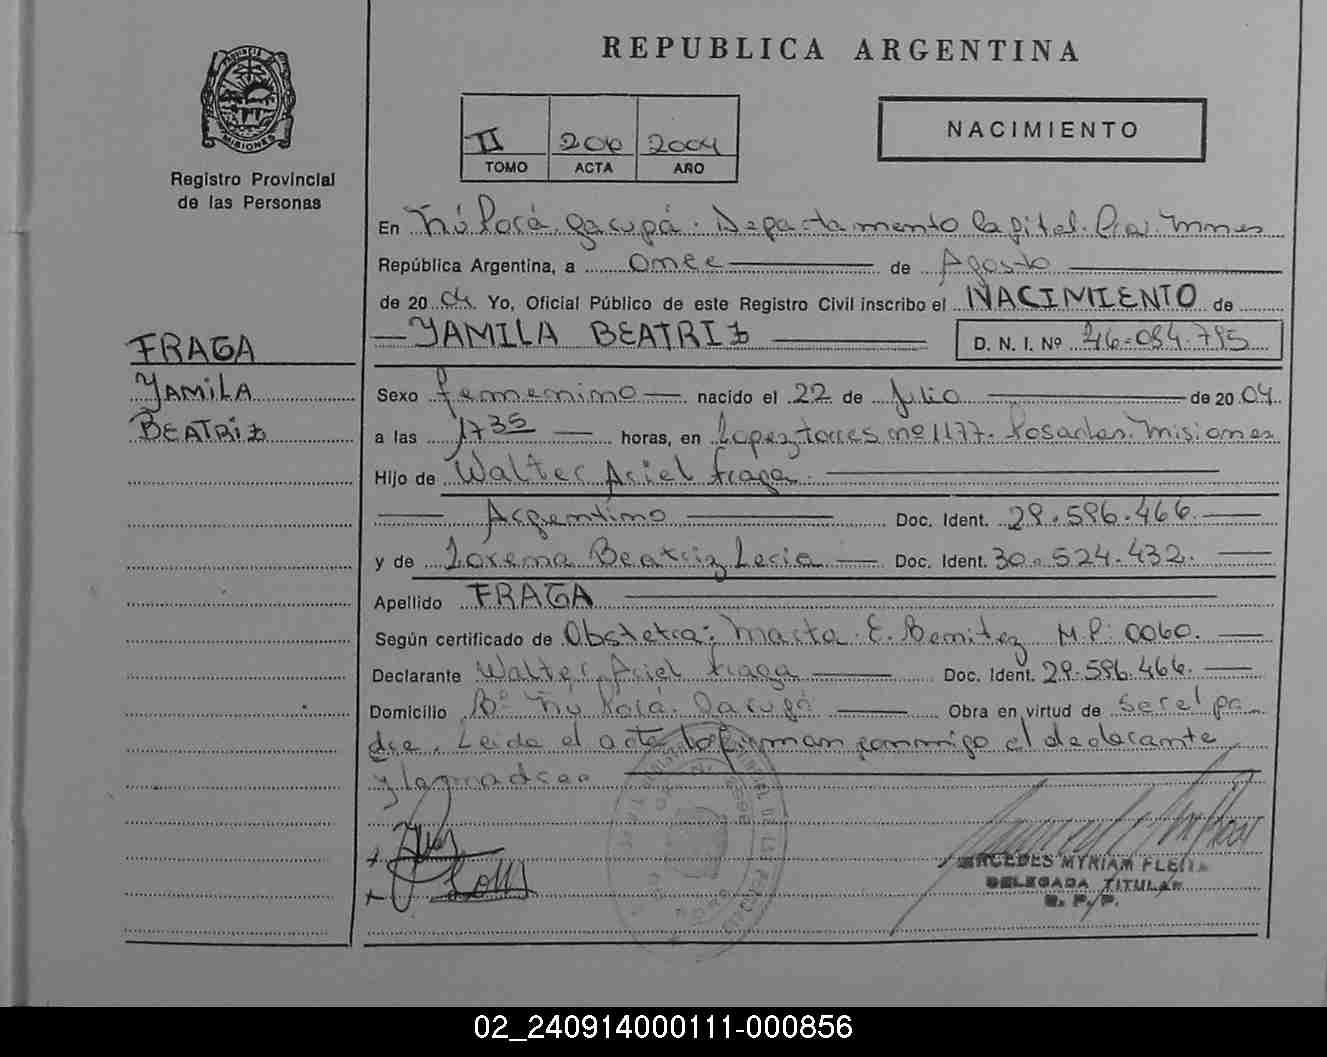 REPUBLICA ARGENTINA
PROVINCIA
MISIONES
Registro Provincial
de las Personas
II 206 2004
TOMO ACTA AÑO
NACIMIENTO
En Ñú Porá. Garupá. Departamento Capital. Mnes
República Argentina, a once de Agosto
de 2004 Yo, Oficial Público de este Registro Civil inscribo el NACIMIENTO de
YAMILA BEATRIZ D. N. I. Nº 46.084.795
FRAGA
YAMILA
BEATRIZ
Sexo femenino nacido el 22 de Julio de 2004
a las 17 35 horas, en Lopez torres nº 1177. Posadas. Misiones
Hijo de Walter Ariel Fraga
Argentino Doc. Ident. 29.596.466
y de Lorena Beatriz Leria Doc. Ident. 30.524.432
Apellido FRAGA
Según certificado de Obstetra: Marta E. Benitez M.P: 0060.
Declarante Walter Ariel Fraga Doc. Ident. 29.596.466.
Domicilio Bº Ñú Porá. Garupá Obra en virtud de ser el pa
dre. Leida el acta la firman conmigo el declarante
y la madre
MYRIAM
DELEGADA TITULAR
R. P. P.
02_240914000111-000856